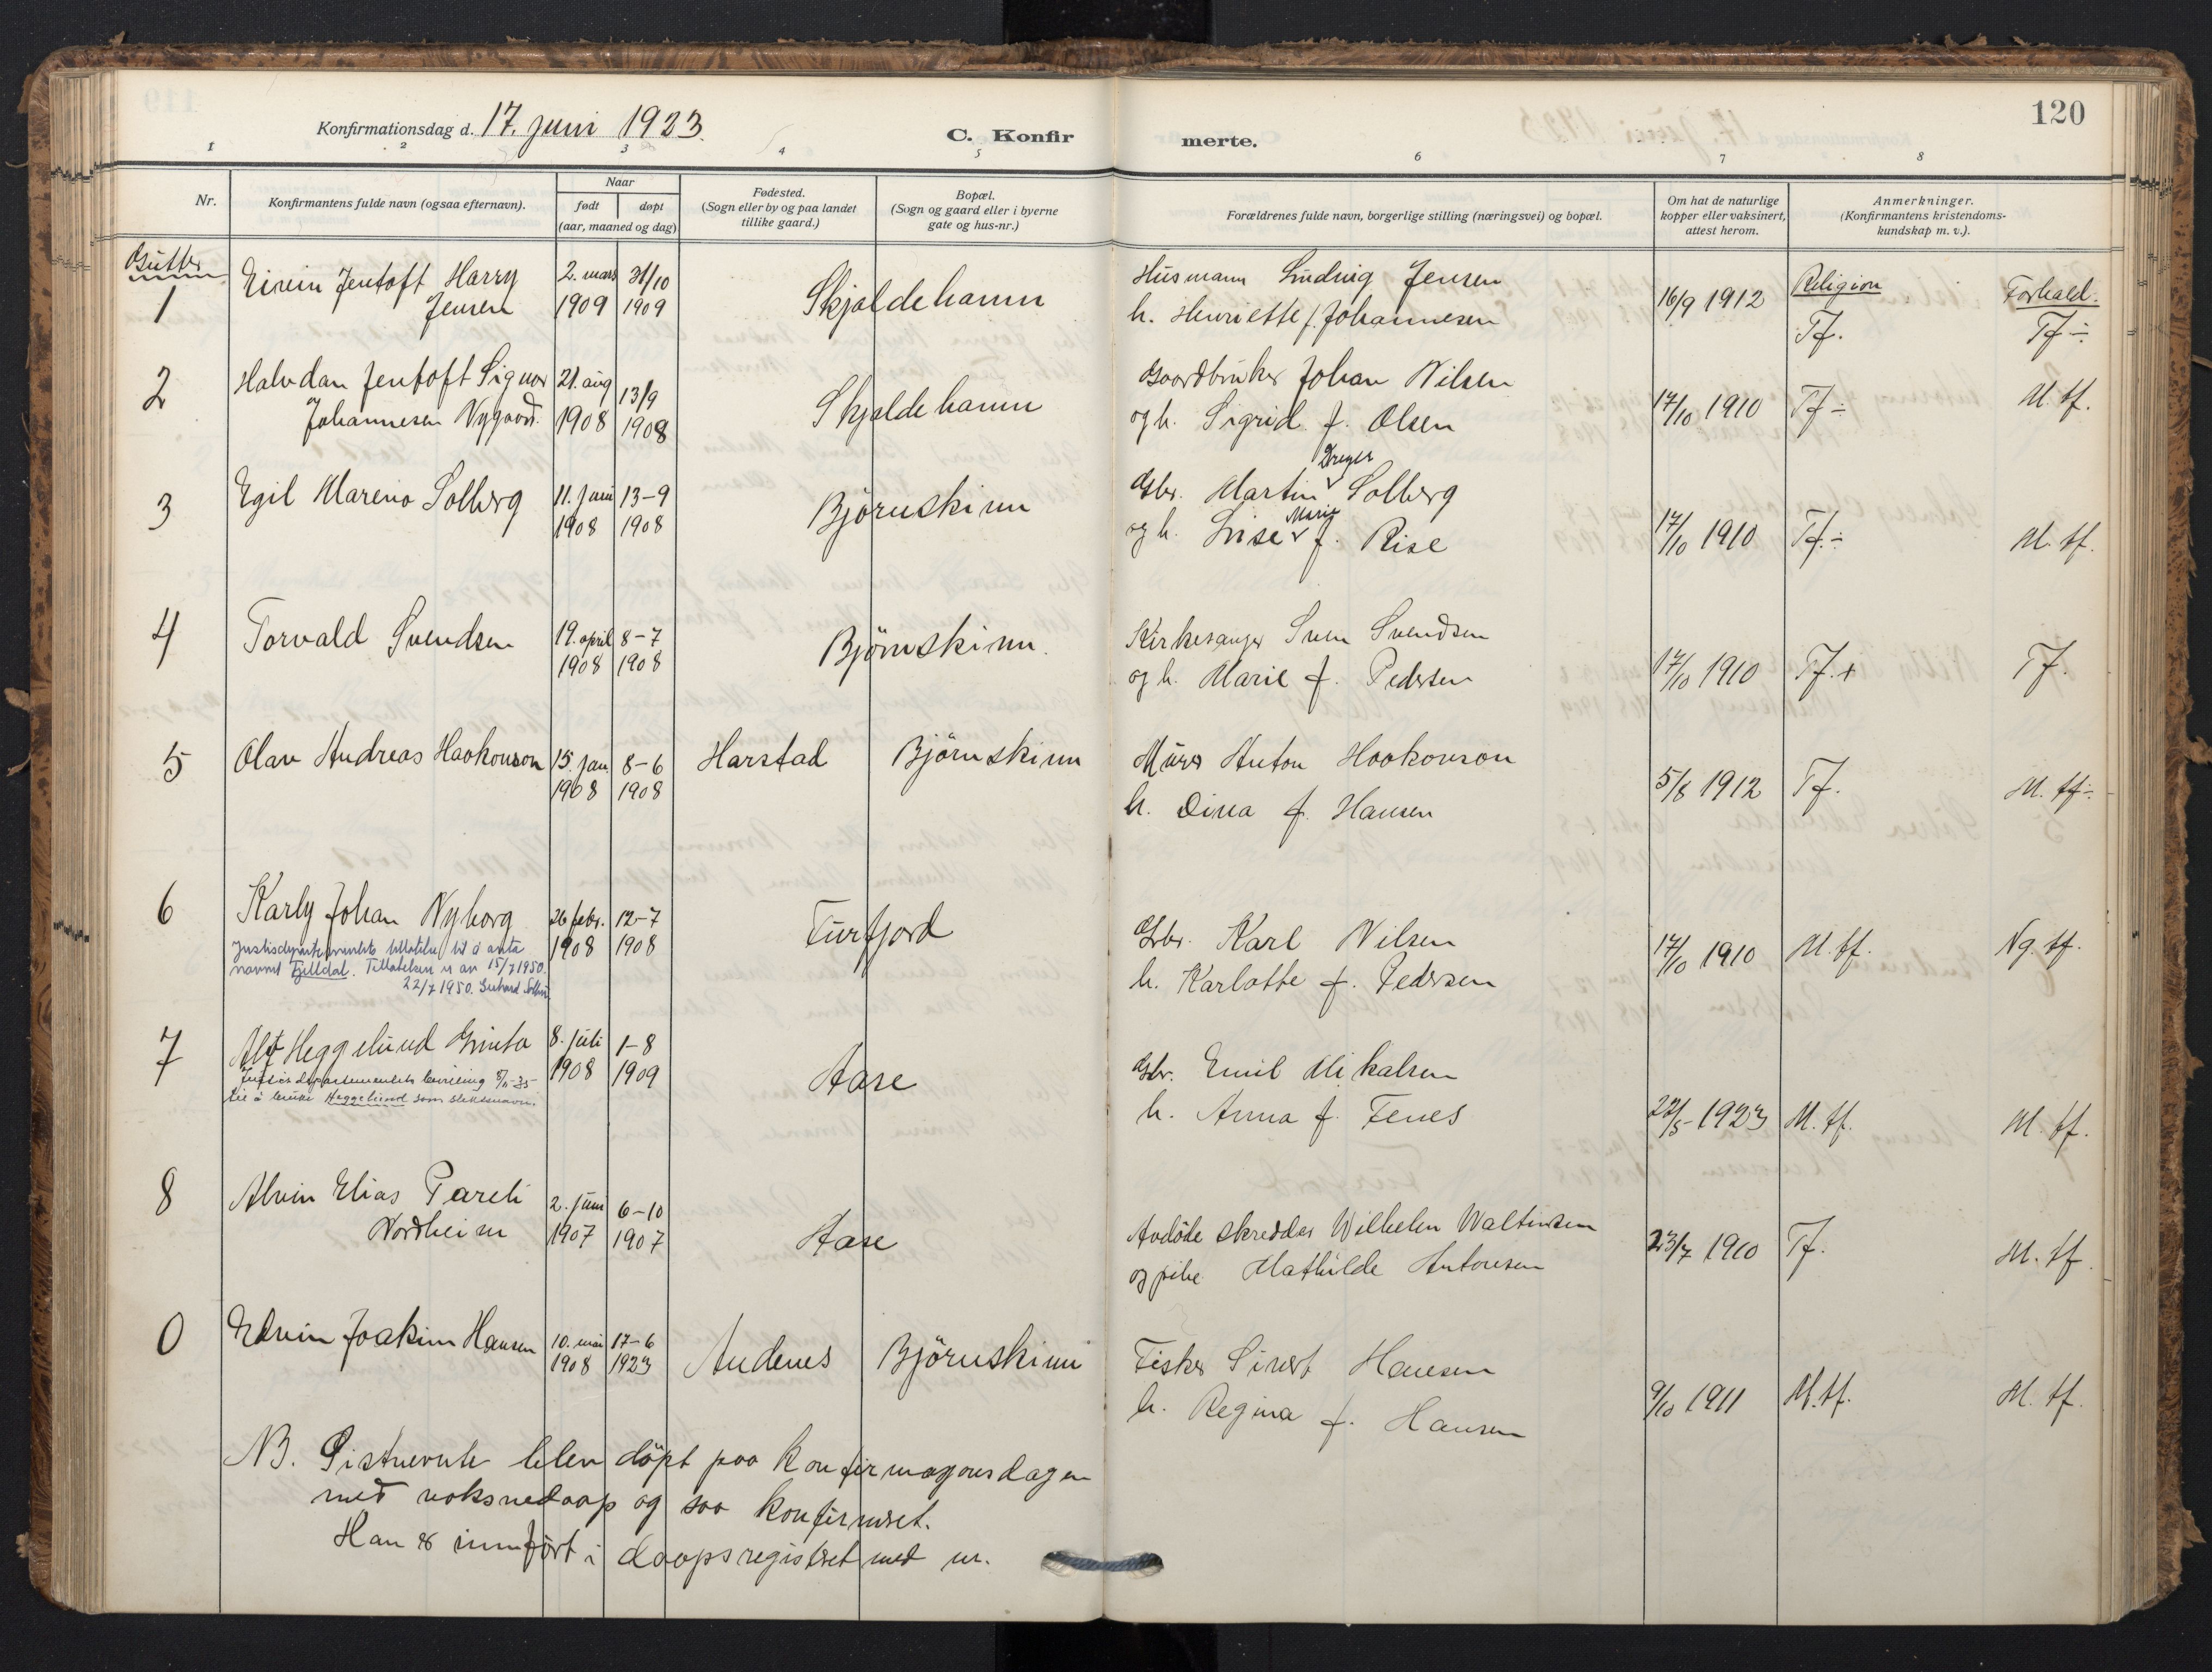 120
Konfirmationsdag d. 17. juni 1923.
C. Konfir merte.
1 2 3 4 5 6 7 8
Nr.
Konfirmantens fulde navn (ogsaa efternavn).
Naar
født døpt
(aar, maaned og dag)
Fødested.
(Sogn eller by og paa landet
tillike gaard.)
Bopæl.
(Sogn og gaard eller i byerne
gate og hus-nr.)
Forældrenes fulde navn, borgerlige stilling (næringsvei) og bopæl.
Om hat de naturlige
kopper eller vaksinert,
attest herom.
Anmerkninger.
(Konfirmantens kristendoms-
kundskap m. v.).
Gutter
Religion Forhold.
1 Eivin Jentoft Harry 2. mars 31/10 Skjoldehamn Husmann Ludvig Jensen 16/9 1912 Tf. Tf÷
Jensen 1909 1909 h. Henriette f. Johannesen
2 Halvdan Jentoft Signor 21. aug 13/9 Skjoldehamn Gaardbruker Johan Nilsen 17/10 1910 Tf÷ M. tf.
Johannesen Nygaard. 1908 1908 og h. Sigrid f. Olsen
Dreyer
3 Egil Mareno Solberg 11. juni 13-9 Bjørnskinn Gbr. Martin Solberg 17/10 1910 Tf.÷ M. tf.
Marie
1908 1908 og h. Lise f. Rise
4 Torvald Svendsen 19. april 8-7 Björnskinn. Kirkesanger Sven Svendsen 17/10 1910 Tf.+ Tf.
1908 1908 og h. Marie f. Pedersen
5 Olav Andreas Haakonson 15. jan. 8-6 Harstad Björnskinn Murer Anton Haakonson 5/8 1912 Tf. M. tf÷
1908 1908 h. Dina f. Hansen
6 Karly Johan Nyborg 26 febr. 12-7 Turfjord Gbr. Karl Nilsen 17/10 1910 M. tf. Ng. tf.
1908 1908 h. Karlotte f. Pedersen
Justisdepartementets tillatelse til å anta
navnet Fjelldal. Tillatelsen er av 15/7 1950.
22/7 1950.
7 Alf Heggelund 8. juli 1-8 Aase Gbr. Emil Mikalsen 22/5-1923 M. tf. M. tf.
1908 1909 h. Anna f. Tenes
Justisdepartementets bevilling 8/11-35
til å bruke Heggelund som slektsnavn.
8 Alvin Elias Pareli 2. juni 6-10 Aase Avdöde skredder Wilhelm Waltinsen 23/7 1910 Tf. M. tf.
Nordheim 1907 1907 og pike Mathilde Antonsen
0 Edvin Joakim Hansen 10. mai 17-6 Andenes Björnskinn Fisker Sivert Hansen 9/10 1911 M. tf. M. tf.
1908 1923 h. Regina f. Hansen
NB. Sistnevnte blev döpt paa konfirmasjonsdagen
med voksnedaap og saa konfirmert.
Han er innført i daapsregistret med nr.